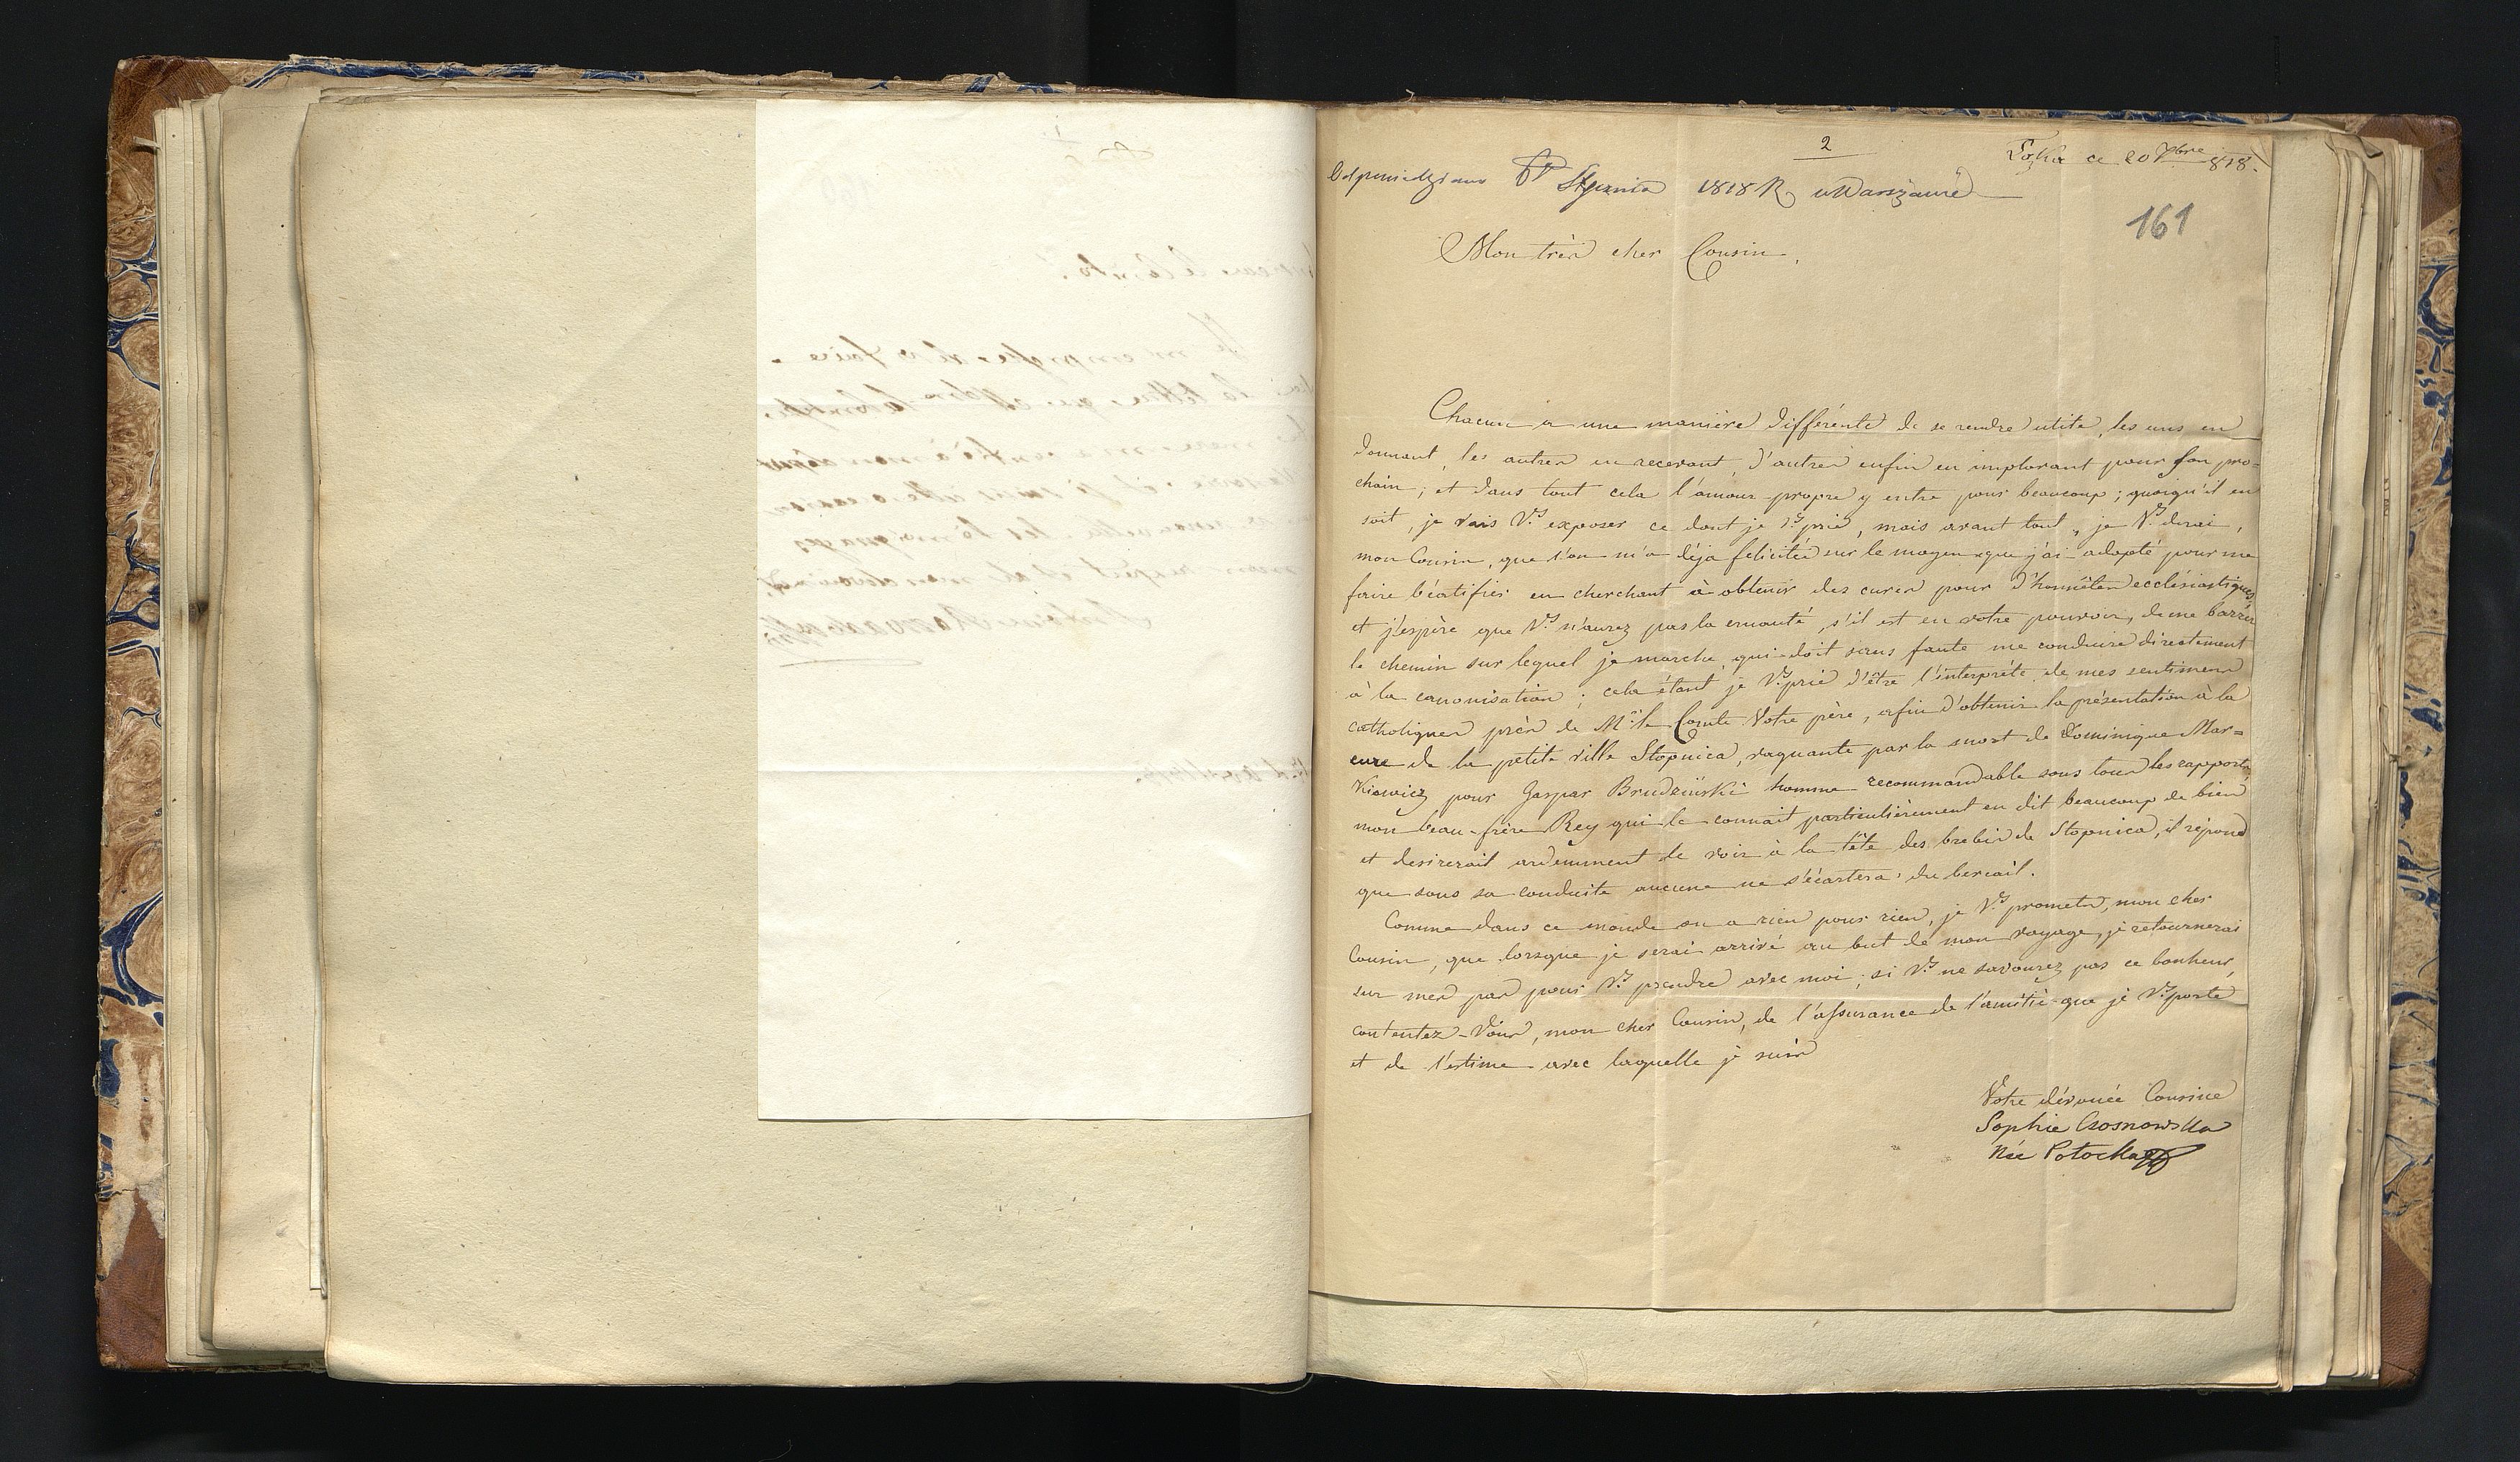 2
Łąka ce 20 Xbre 818.
Odpowiedziano Stycznia 1818 R w Warszawie
161
Mon très cher Cousin,
Chacun a une manière différente de se rendre utile, les uns en
donnant, les autres en recevant, d'autres enfin en implorant pour son pro=
chain; et dans tout cela l'amour-propre y entre pour beaucoup; quoiqu'il en
soit, je vais Vs exposer ce dont je Vs prie, mais avant tout, je Vs dirai,
mon Cousin, que l'on m'a déja felicitée sur le moyen que j'ai adopté pour me
faire béatifier en cherchant à obtenir des cures pour d'honnêtes ecclésiastiques,
et j'espère que Vs n'aurez pas la cruauté, s'il est en votre pouvoir, de me barrer
le chemin sur lequel je marche, qui doit sans faute me conduire directement
à la canonisation; cela étant je Vs prie d'être l'interprète de mes sentimens
catholiques près de Mr le Comte Votre père, afin d'obtenir la présentation à la
cure de la petite ville Stopnica, vaquante par la mort de Dominique Mar=
kiewicz pour Gaspar Brudziński homme recommandable sous tous les rapports,
mon beau-frère Rey qui le connait particulièrement en dit beaucoup de bien
et desirerait ardemment le voir à la tête des brebis de Stopnica, il répond
que sous sa conduite aucune ne s'écartera du bercail.
Comme dans ce monde on a rien pour rien, je Vs promets, mon cher
Cousin, que lorsque je serai arrivé au but de mon voyage, je retournerai
sur mes pas pour Vs prendre avec moi; si Vs ne savourez pas ce bonheur,
contentez-Vous, mon cher Cousin, de l'assurance de l'amitié que je Vs porte
et de l'estime avec laquelle je suis
Votre dévouée Cousine
Sophie Czosnowska
Née Potocka